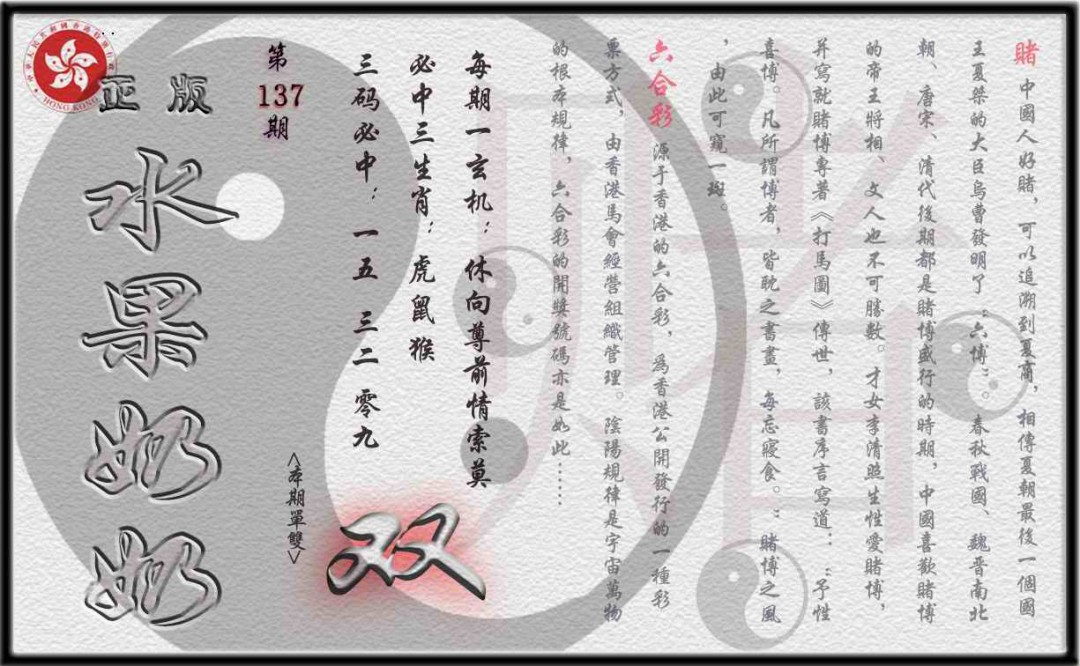 賭 中國人好賭，可以追溯到夏商，相傳夏朝最後一個國
王夏桀的大臣烏曹發明了“六博”。春秋戰國、魏晉南北
朝、唐宋、清代後期都是賭博盛行的時期，中國喜歡賭博
的帝王將相、文人也不可勝數。才女李清照生性愛賭博，
并寫就賭博專著《打馬圖》傳世，該書序言寫道：“予性
喜博。凡所謂博者，皆耽之書畫，每忘寢食。”賭博之風
，由此可窺一斑。
六合彩 源于香港的六合彩，為香港公開發行的一種彩
票方式，由香港馬會經營組織管理。陰陽規律是宇宙萬物
的根本規律，六合彩的開獎號碼亦是如此……
每期一玄机：休向尊前情索莫
必中三生肖：虎鼠猴
三码必中：一五 三二 零九
双
<本期單雙>
第137期
正版
水果奶奶
HONG KONG